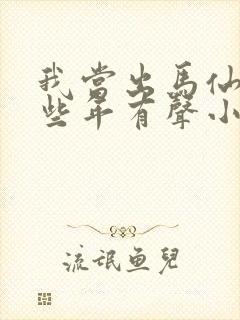 我當出馬仙
些年有聲小
流氓魚兒